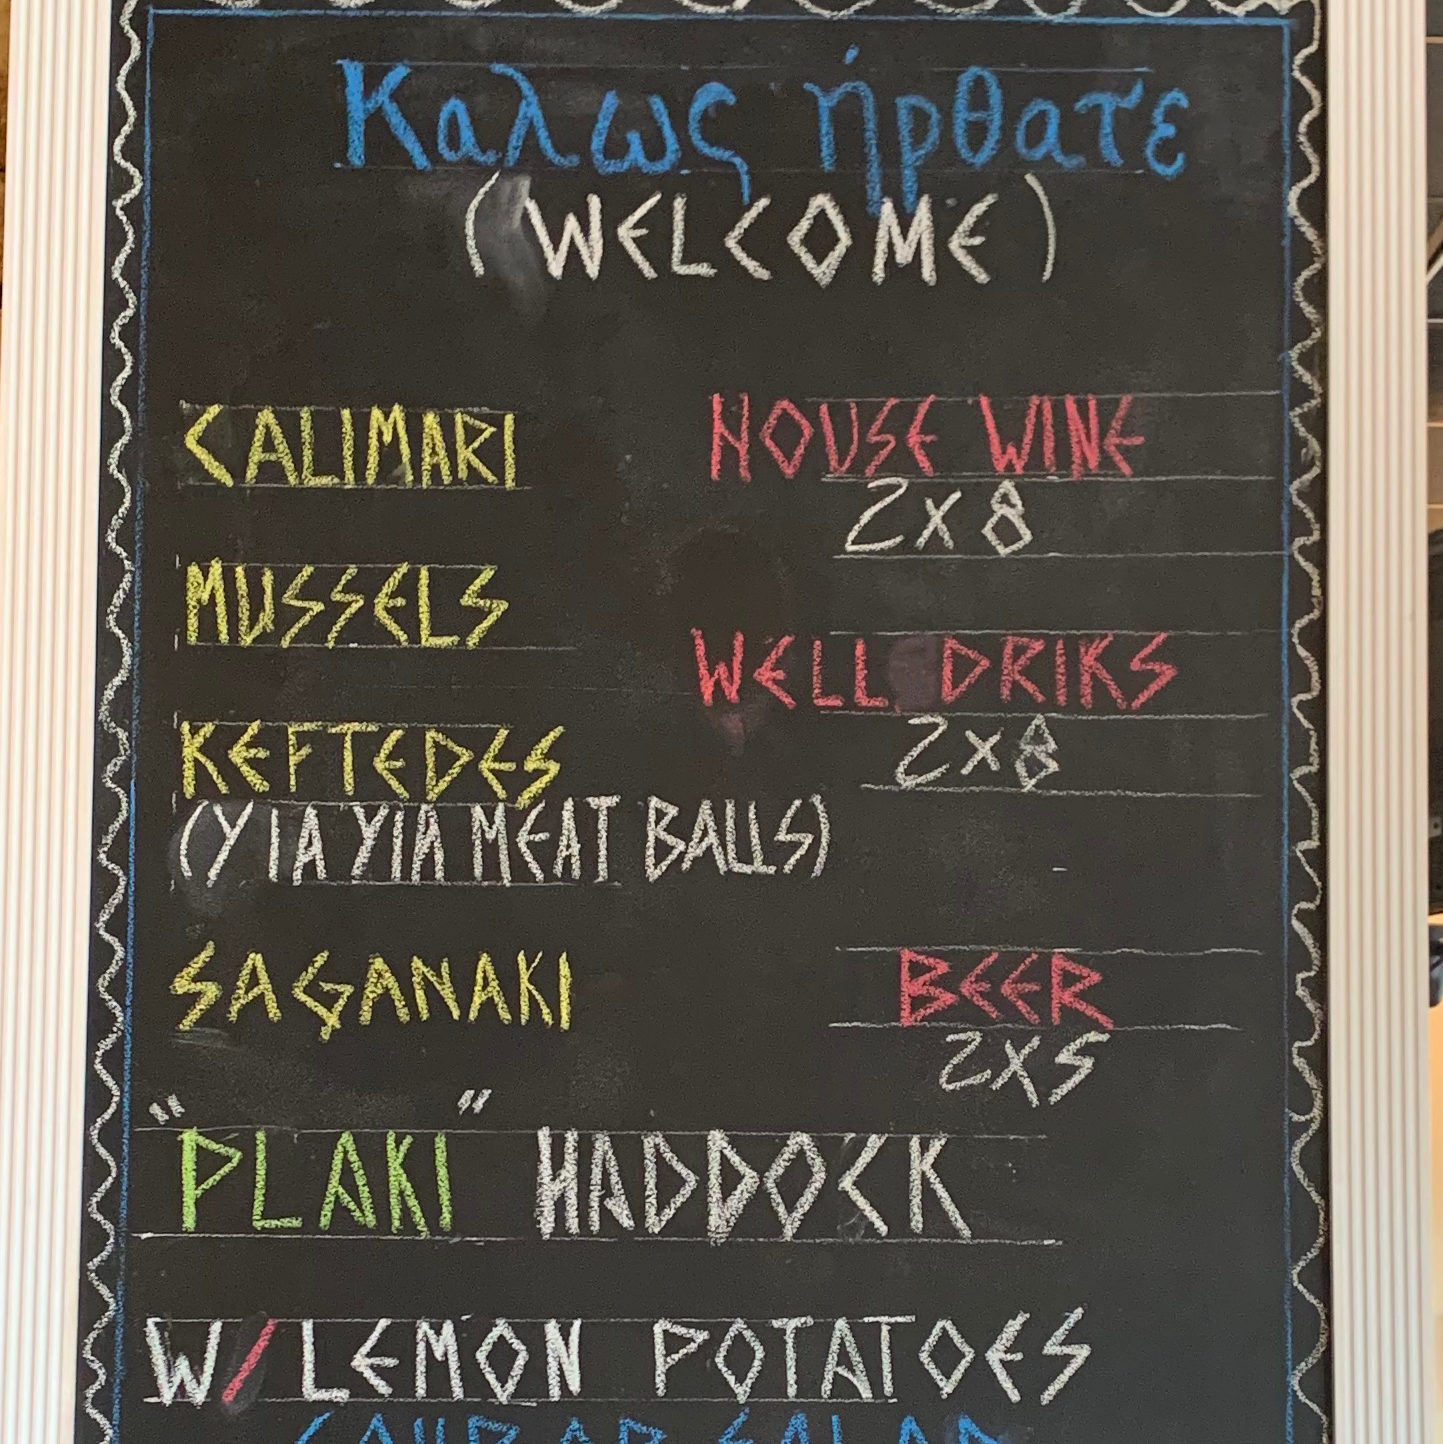 Καλως ήρθατε
(WELCOME)
CALIMARI
MUSSELS
KEFTEDES
(YIA YIA MEAT BALLS)
SAGANAKI
HOUSE WINE
2x8
WELL DRIKS
2x8
BEER
2x5
"PLAKI" HADDOCK
W/LEMON POTATOES